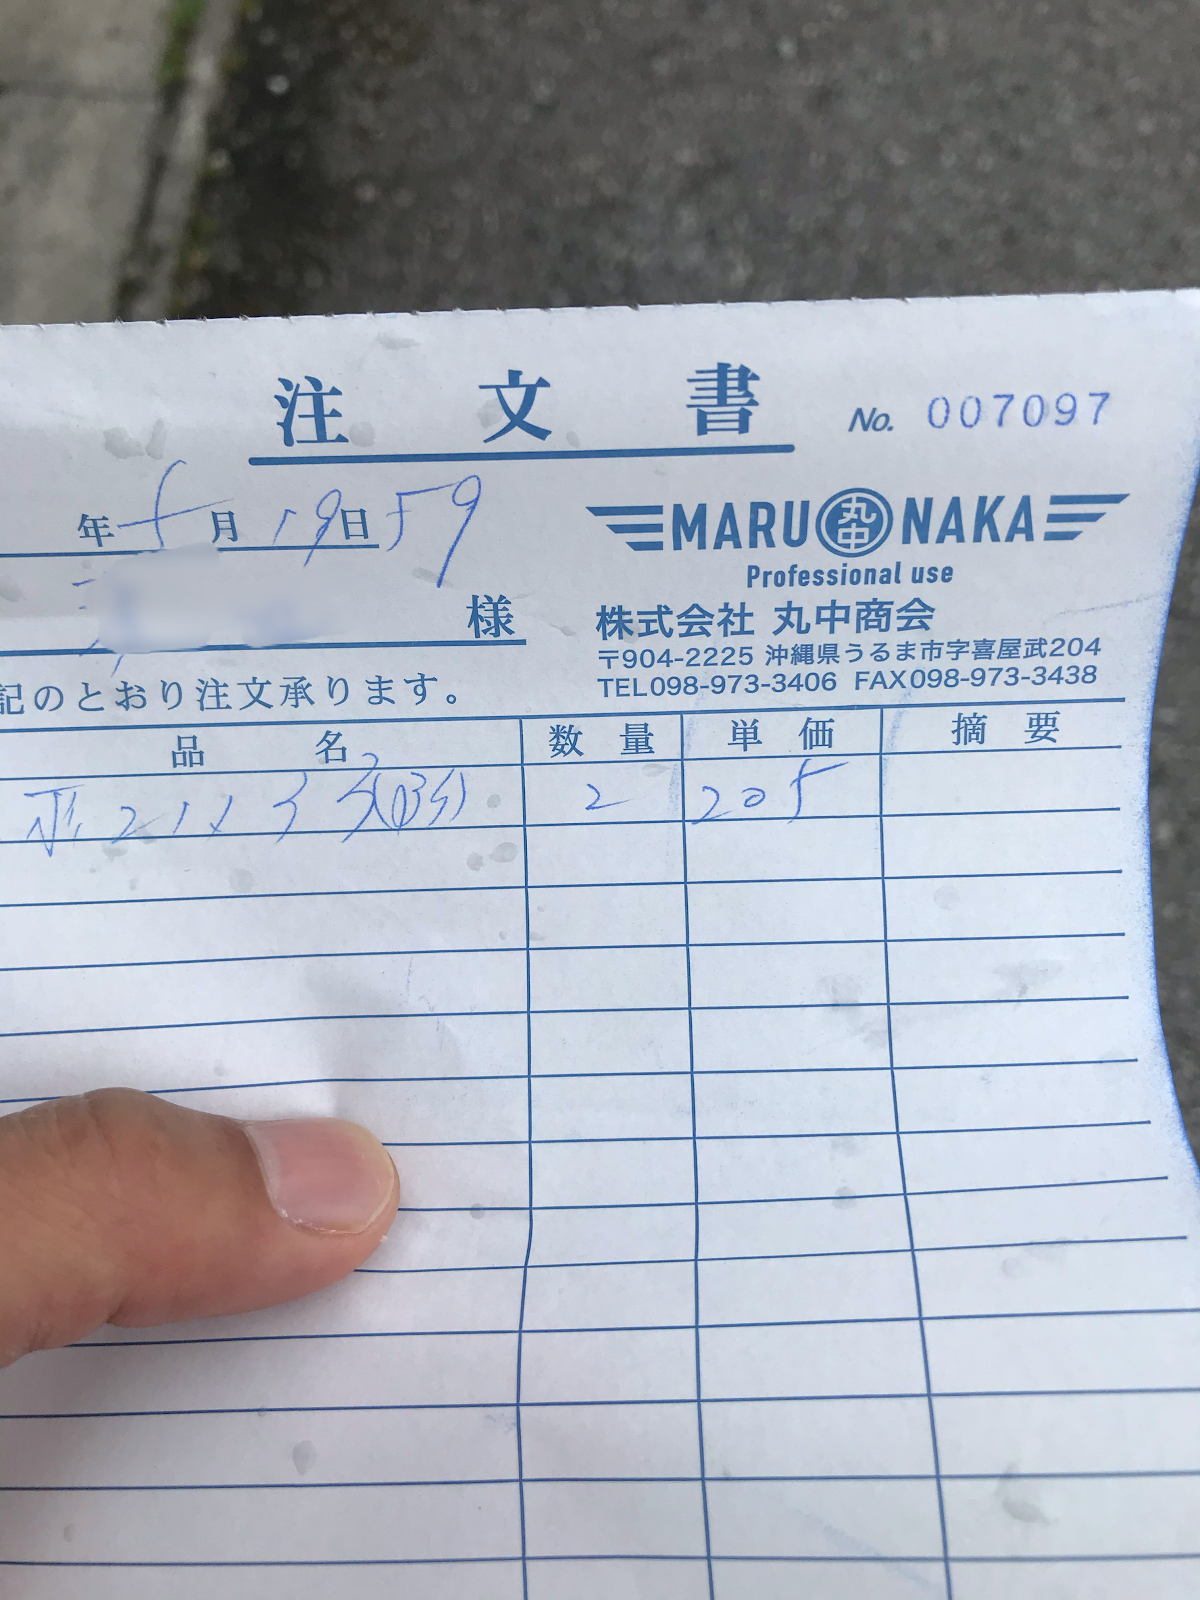 注文書 No. 007097
年 5 月 19 日 59
MARU 丸中 NAKA
Professional use
様
株式会社 丸中商会
〒904-2225 沖縄県うるま市字喜屋武204
TEL098-973-3406 FAX098-973-3438
記のとおり注文承ります。
品名 数量 単価 摘要
2 205